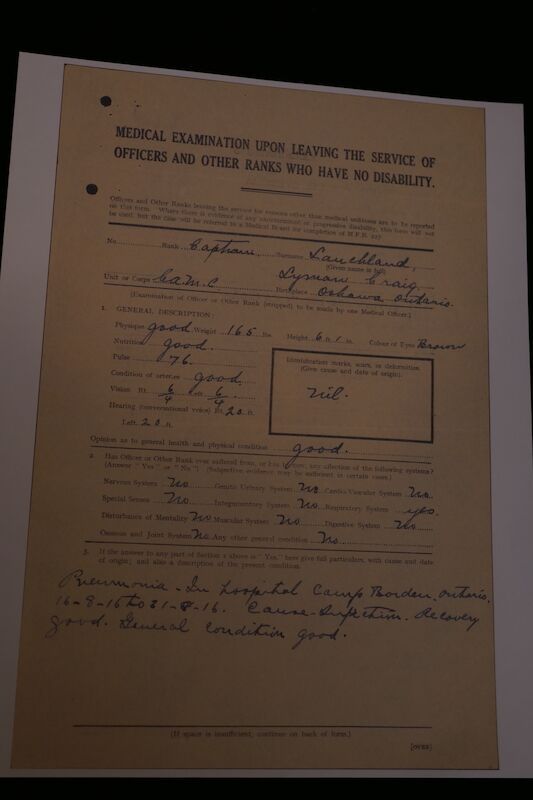 MEDICAL EXAMINATION UPON LEAVING THE SERVICE OF
OFFICERS AND OTHER RANKS WHO HAVE NO DISABILITY.
Officers and Other Ranks leaving the service for reasons other than medical unfitness are to be reported
on this form. Where there is evidence of any or progressive disability, this form will not
be used, but the case will be referred to a Medical Board for completion of M.F.B. 227
No. Rank Captain Surname Lauchland,
(Given name in full)
Lyman Craig
Unit or Corps C.A.M.C Birthplace Oshawa Ontario.
(Examination of Officer or Other Rank (stripped) to be made by one Medical Officer.)
1. GENERAL DESCRIPTION:
Physique good Weight 165 lbs. Height 6 ft 1 in. Colour of Eyes Brown
Nutrition good.
Pulse 76
Condition of arteries good.
Vision Rt. 6/4 Left 6/4
Hearing (conversational voice) Rt. 20 ft.
Left 20 ft.
Identification marks, scars, or deformities.
(Give cause and date of origin).
Nil.
Opinion as to general health and physical condition good.
2. Has Officer or Other Rank ever suffered from, or has he now, any affection of the following systems?
(Answer "Yes" or "No"). (Subjective evidence may be sufficient in certain cases.)
Nervous System No Genito Urinary System No Cardio Vascular System No.
Special Senses No Integumentary System No Respiratory System yes.
Disturbance of Mentality No Muscular System No Digestive System No
Osseous and Joint System No Any other general condition No
3. If the answer to any part of Section 2 above is "Yes," here give full particulars, with cause and date
of origin; and also a description of the present condition.
Pneumonia - In hospital Camp Borden, Ontario.
16-8-16 to 31-8-16. Cause - Infection. Recovery
good. General condition good.
(If space is insufficient, continue on back of form.)
[OVER]